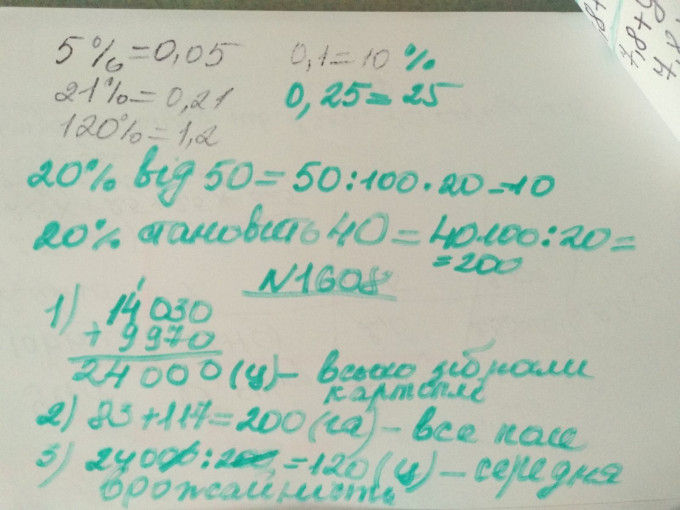 5%=0,05 0,1=10 %
21%=0,21 0,25=25
120%=1,2
20% від 50=50:100·20=10
20% становить 40=40·100:20=
=200
N1608
1) 14 030
+ 9 970
24 000 (ц)- всього зібрали
картоплі
2) 83+117=200(га)-все поле
3) 24000:200=120(ц)-середня
врожайність
7,8+9